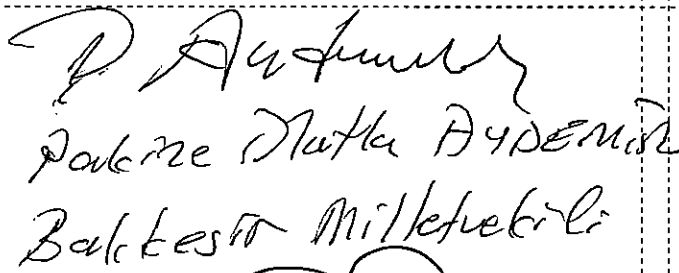 P. Aydemir
Pakize Mutlu AYDEMİR
Balıkesir Milletvekili